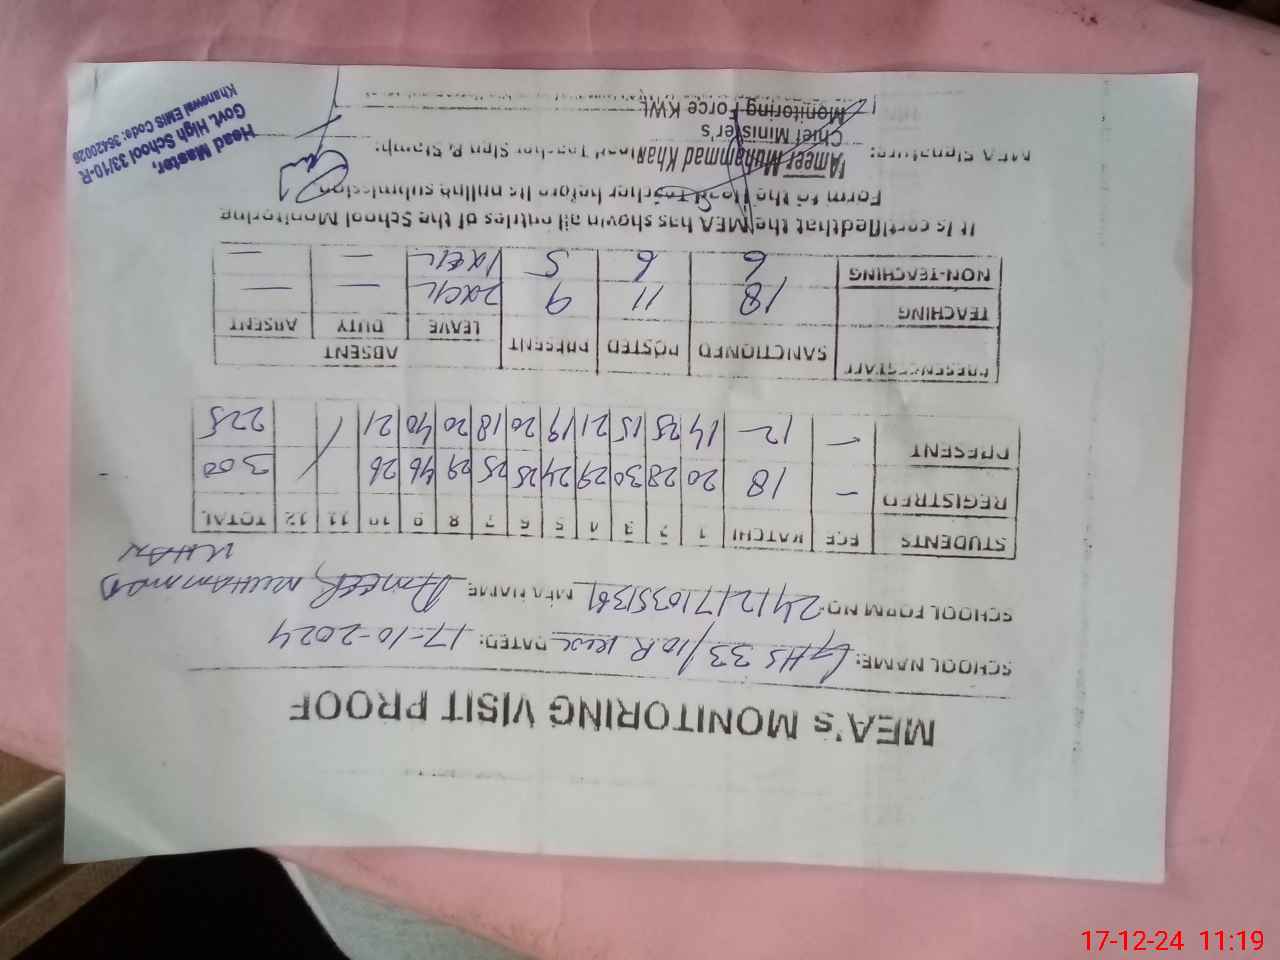 MEA's MONITORING VISIT PROOF
SCHOOL NAME: GHS 33/10.R KWL DATED: 17-10-2024
SCHOOL FORM NO: MEA NAME AMEER MUHAMMAD KHAN
STUDENTS ECE KATCHI 1 2 3 4 5 6 7 8 9 10 11 12 TOTAL
REGISTRED - 18 20 28 30 29 24 25 25 29 46 26 / 300
PRESENT - 12 14 25 15 21 19 20 18 20 40 21 / 225
PRESENCE STAFF SANCTIONED POSTED PRESENT ABSENT
LEAVE DUTY ABSENT
TEACHING 18 11 9 2xCL — —
NON-TEACHING 6 6 5 1xCL — —
It is certified that the MEA has shown all entries of the School Monitoring
Form to the Head Teacher before its online submission
MEA Signature: (Ameer Muhammad Khan) Head Teacher Sign & Stamp:
Chief Minister's
Monitoring Force KWL
Head Master,
Govt. High School 33/10-R
Khanewal EMIS Code: 36420026
17-12-24 11:19